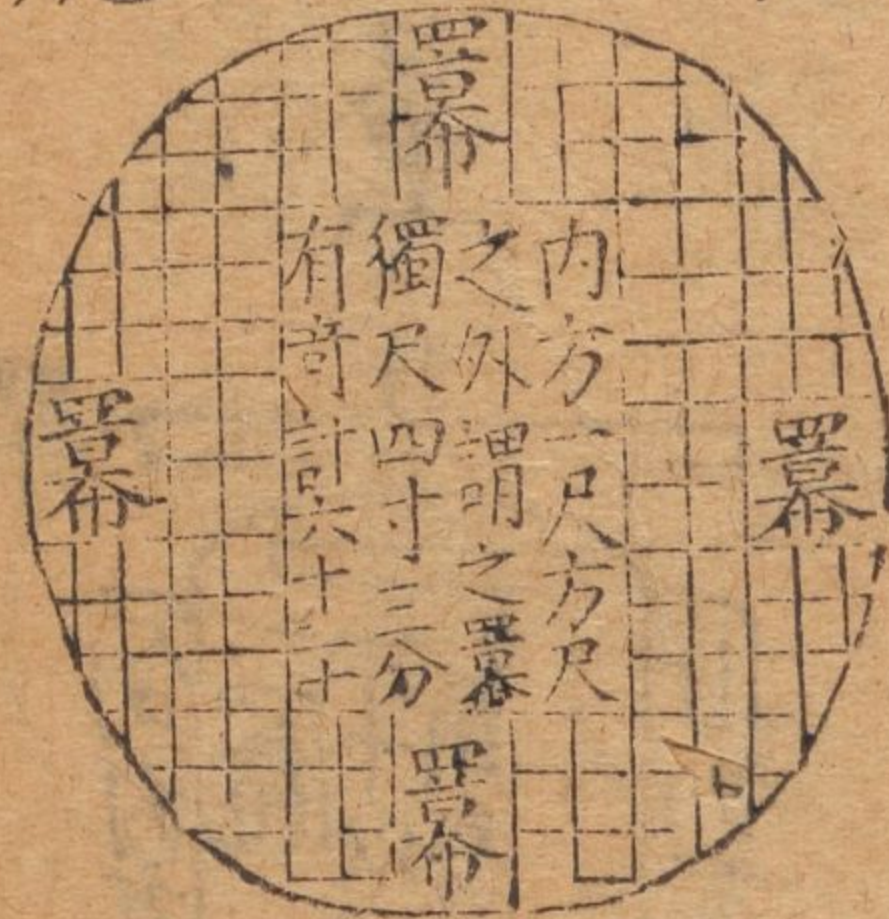 羃
羃
内方一尺方尺
之外謂之羃
獨尺四寸三分
有竒計六十二十
羃
羃